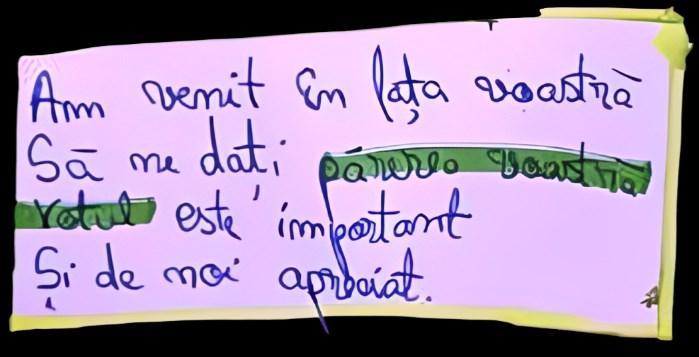 Am venit în fața voastră
Să ne dați părerea voastră
Votul este important
Și de noi apreciat.